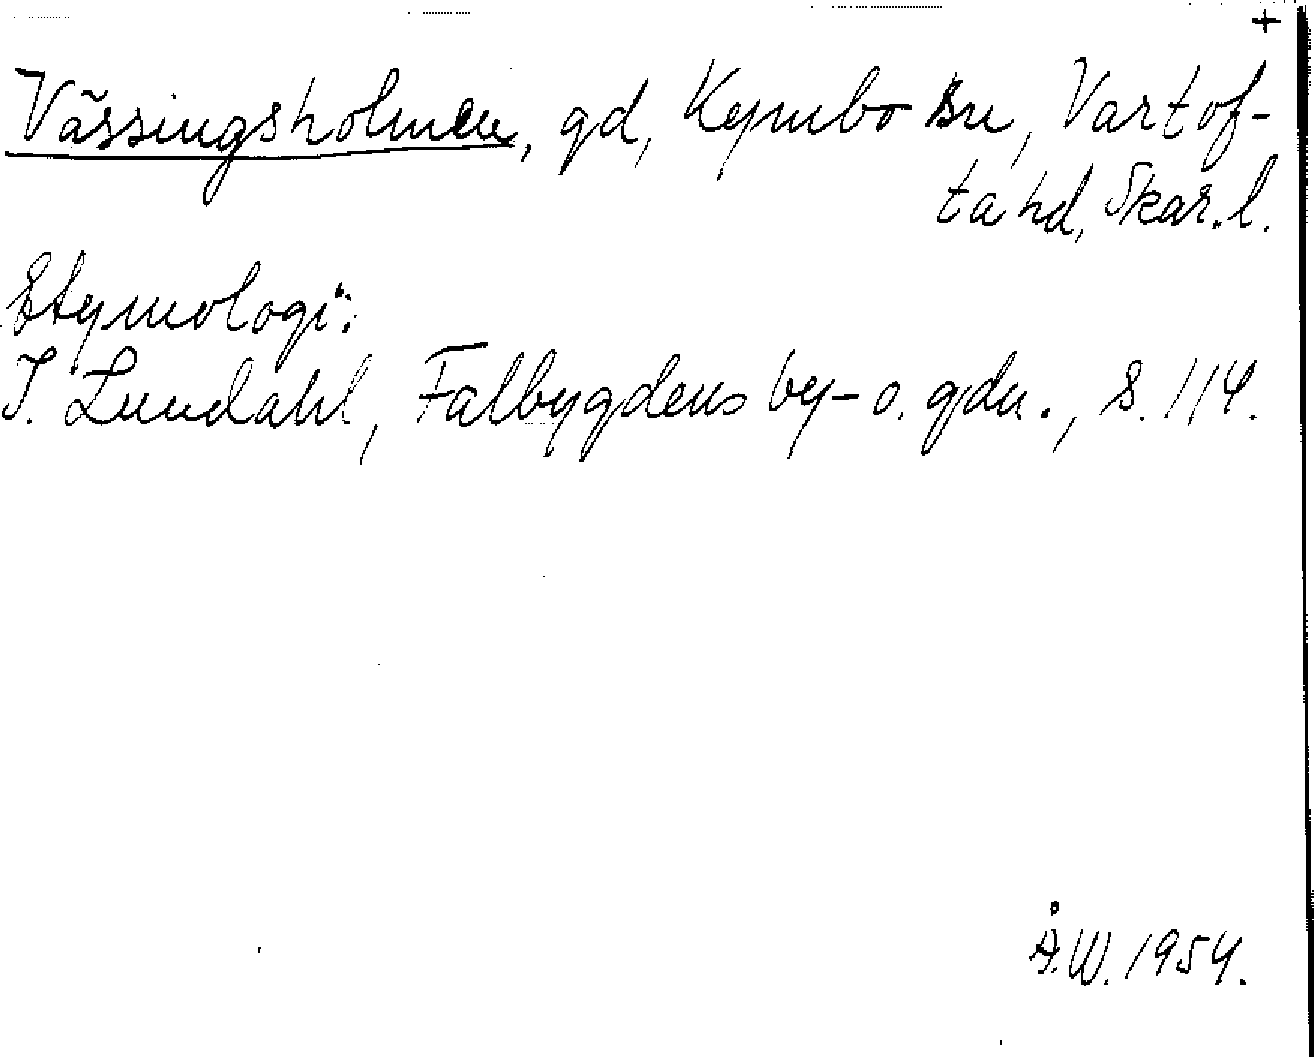 +
Vässingsholmen, gd, Kymbo sn, Vartof-
ta hd, Skar. l.
Etymologi:
I. Lundahl, Falbygdens by- o. gdn., s. 114.
Å.W. 1954.